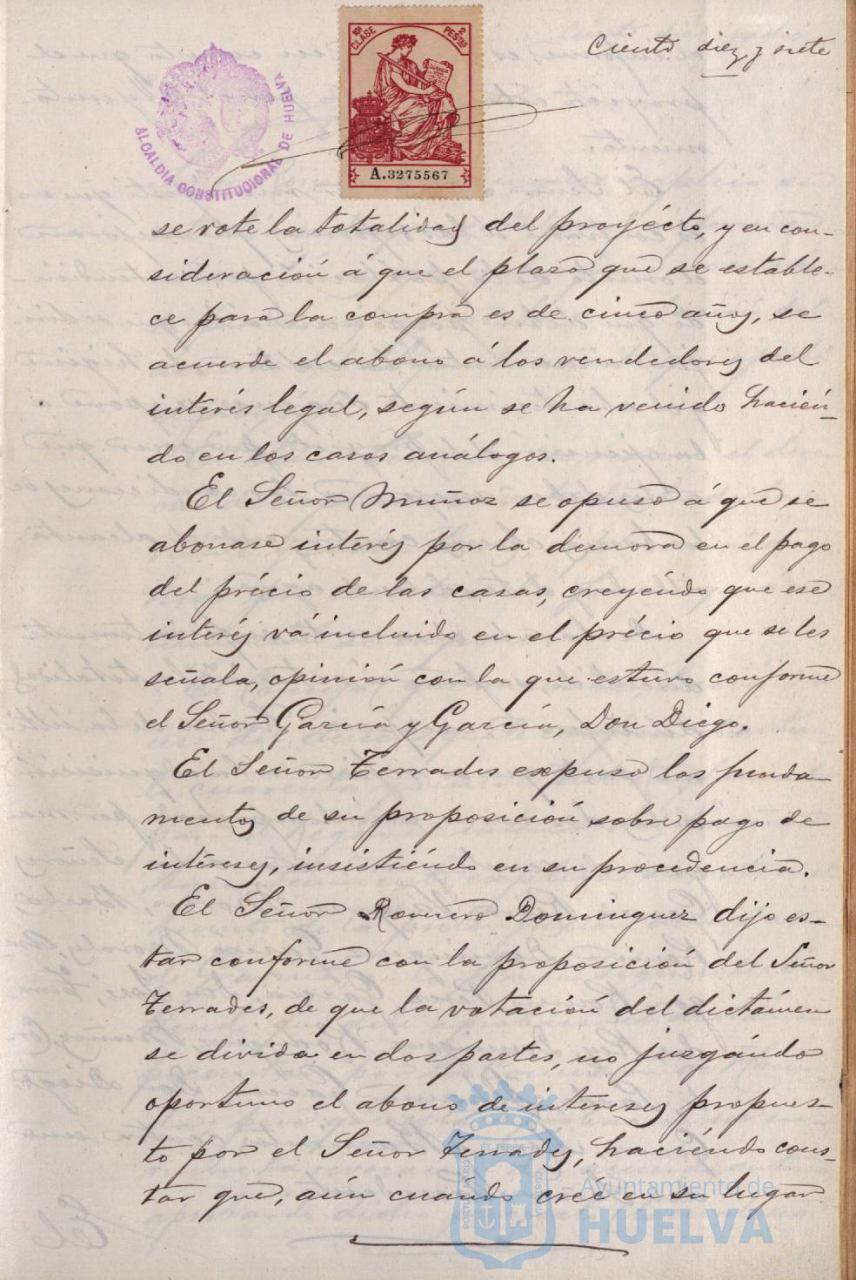 Ciento diez y siete
10ª CLASE 2 PESTAS
A.3275567
ALCALDIA CONSTITUCIONAL DE HUELVA
se vote la totalidad del proyécto, y en con-
sideración á que el plazo que se estable-
ce para la compra es de cinco años, se
acuerde el abono á los vendedores del
interés legal, según se ha venido hacién-
do en los casos análogos.
El Señor Muñoz se opuso á que se
abonase interés por la demora en el pago
del précio de las casas, creyéndo que ese
interés vá incluido en el précio que se les
señala, opinión con la que estuvo conforme
el Señor García y García, Don Diego.
El Señor Terrades expuso los funda-
mentos de su proposición sobre pago de
intéreses, insistiéndo en su procedencia.
El Señor Romero Dominguez dijo es-
tar conforme con la proposición del Señor
Terrades, de que la votación del dictámen
se divida en dos partes, no juzgándo
oportuno el abono de intereses propues-
to por el Señor Terrades, haciéndo cons-
tar que, aún cuándo creé en su lugar
Ayuntamiento de
HUELVA